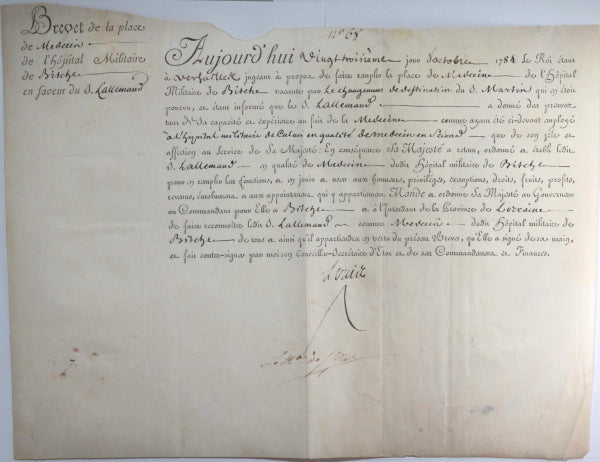 N.º 68
Brevet de la place
de Medecin
de l'hôpital Militaire
de Bitche
en faveur du S. Lallemand
Aujourd'hui Vingt troisième jour d'octobre 1784. Le Roi étant
à Versailles jugeant à propos de faire remplir la place de Medecin de l'Hôpital
Militaire de Bitche vacante par Le changement de destination du S. Martin qui en étoit
pourvu, et étant informé que le S. Lallemand a donné des preuves
tant de sa capacité et expérience au fait de la Medecine comme ayant été ci-devant employé
à l'hôpital militaire de Calais en qualité de medecin en Second que de son zèle et
affection au Service de Sa Majesté: En conséquence Sa Majesté a retenu, ordonné et établi ledit
S. Lallemand en qualité de Medecin dudit Hôpital militaire de Bitche
pour en remplir les fonctions, et en jouir et user aux honneurs, privilèges, exemptions, droits, fruits, profits,
revenus, émolumens et aux appointemens qui y appartiennent. Mande et ordonne Sa Majesté au Gouverneur
ou Commandant pour Elle à Bitche et à l'Intendant de la Province de Lorraine
de faire reconnoître ledit S. Lallemand comme Medecin dudit Hôpital militaire de
Bitche de tous et ainsi qu'il appartiendra en vertu du présent Brevet, qu'Elle a signé de sa main,
et fait contre-signer par moi son Conseiller-Secrétaire d'Etat et de ses Commandemens et Finances.
Louis
Le M.al de Ségur
7.